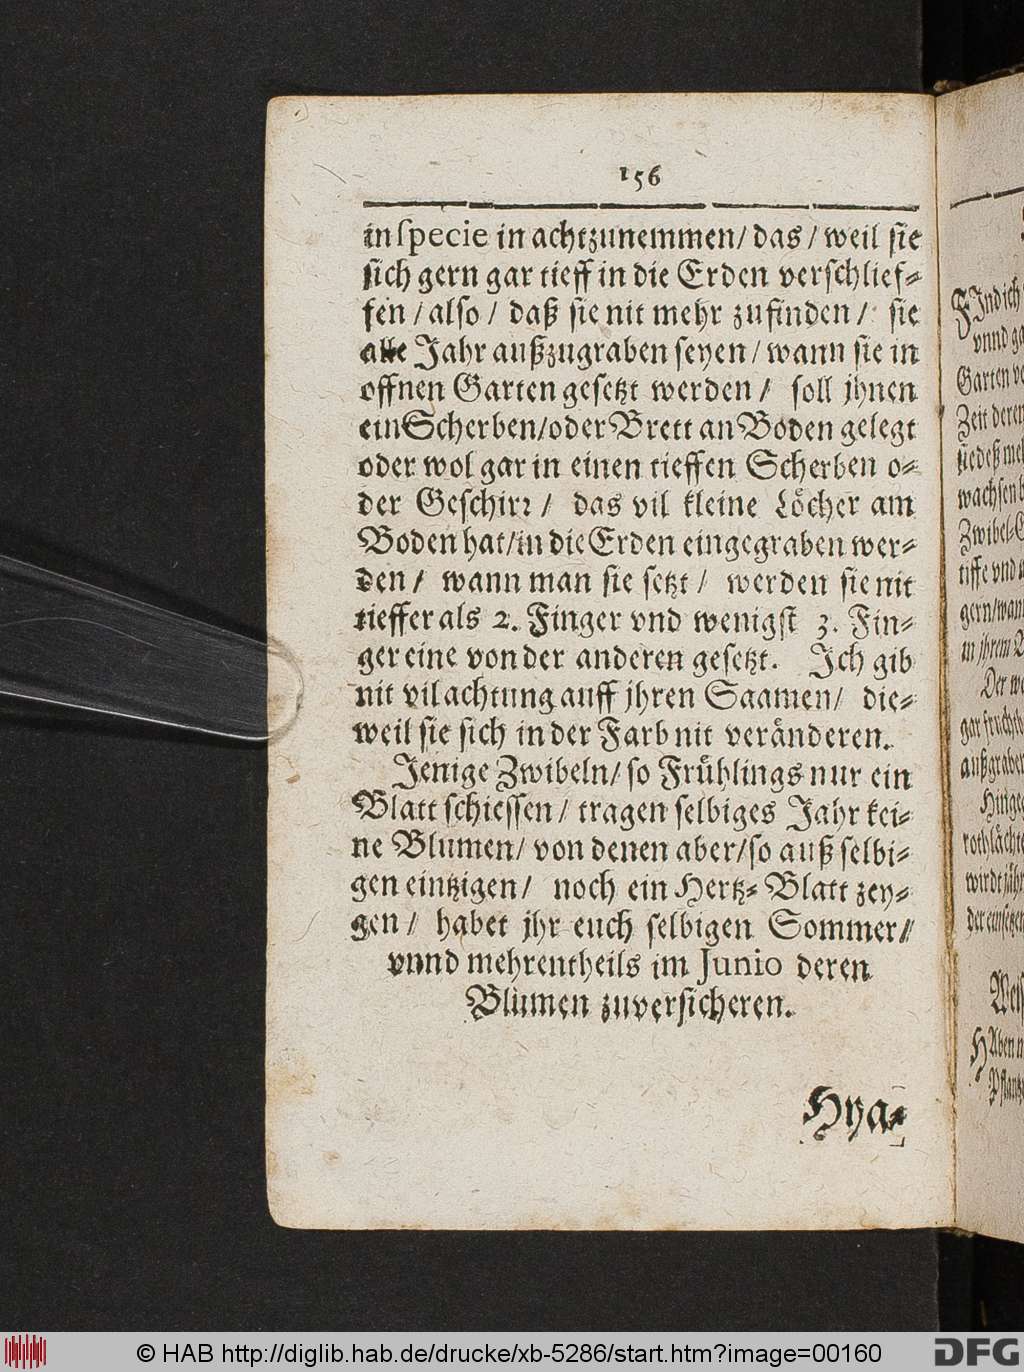 156
in specie in achtzunemmen/ das/ weil sie
sich gern gar tieff in die Erden verschlief-
fen/ also/ daß sie nit mehr zufinden/ sie
alle Jahr außzugraben seyen/ wann sie in
offnen Garten gesetzt werden/ soll jhnen
ein Scherben/oder Brett an Boden gelegt
oder wol gar in einen tieffen Scherben o-
der Geschirr/ das vil kleine Löcher am
Boden hat/in die Erden eingegraben wer-
den/ wann man sie setzt/ werden sie nit
tieffer als 2. Finger vnd wenigst 3. Fin-
ger eine von der anderen gesetzt. Ich gib
nit vil achtung auff jhren Saamen/ die-
weil sie sich in der Farb nit veränderen.
Jenige Zwibeln/ so Frühlings nur ein
Blatt schiessen/ tragen selbiges Jahr kei-
ne Blumen/ von denen aber/so auß selbi-
gen eintzigen/ noch ein Hertz-Blatt zey-
gen/ habet jhr euch selbigen Sommer/
vnnd mehrentheils im Junio deren
Blumen zuversicheren.
Hya-
FInd ich
vnnd
Garten
Zeit deren
sie deß
Zwibel-
tiffe vnd
gern/
in jhrem
Der
gar
Hinge
wirdt
der einsetzen
HAben
© HAB http://diglib.hab.de/drucke/xb-5286/start.htm?image=00160
DFG